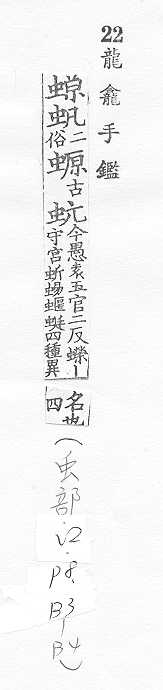 22 龍龕手鑑
二俗螈古蚖今愚袁五官二反蠑丨守宮蚸蜴蝘蜓四種異名也四
(虫部・V2・P8・B3-B4)